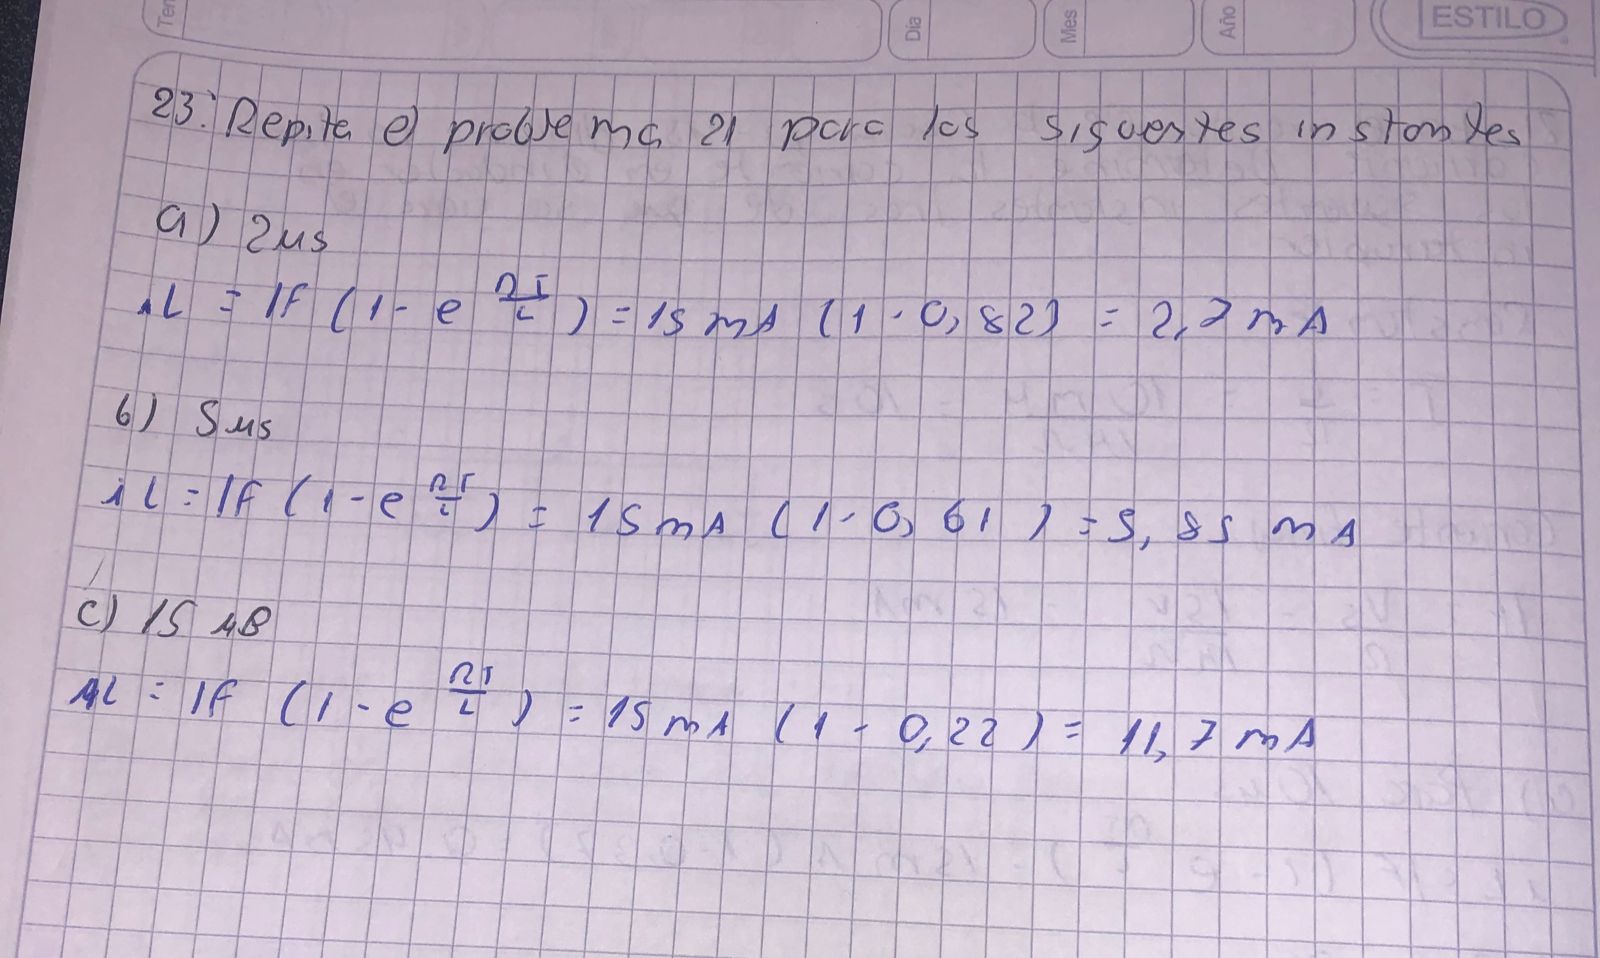 Día Mes Año ESTILO
23. Repita el problema 21 para los siguestes instontes
a) 2μs
iL = IF (1 - e RT/L) = 15 mA (1 - 0,82) = 2,7 mA
b) 5μs
iL = IF (1 - e RT/L) = 15 mA (1 - 0,61) = 5,85 mA
c) 15 μs
iL = IF (1 - e RT/L) = 15 mA (1 - 0,22) = 11,7 mA